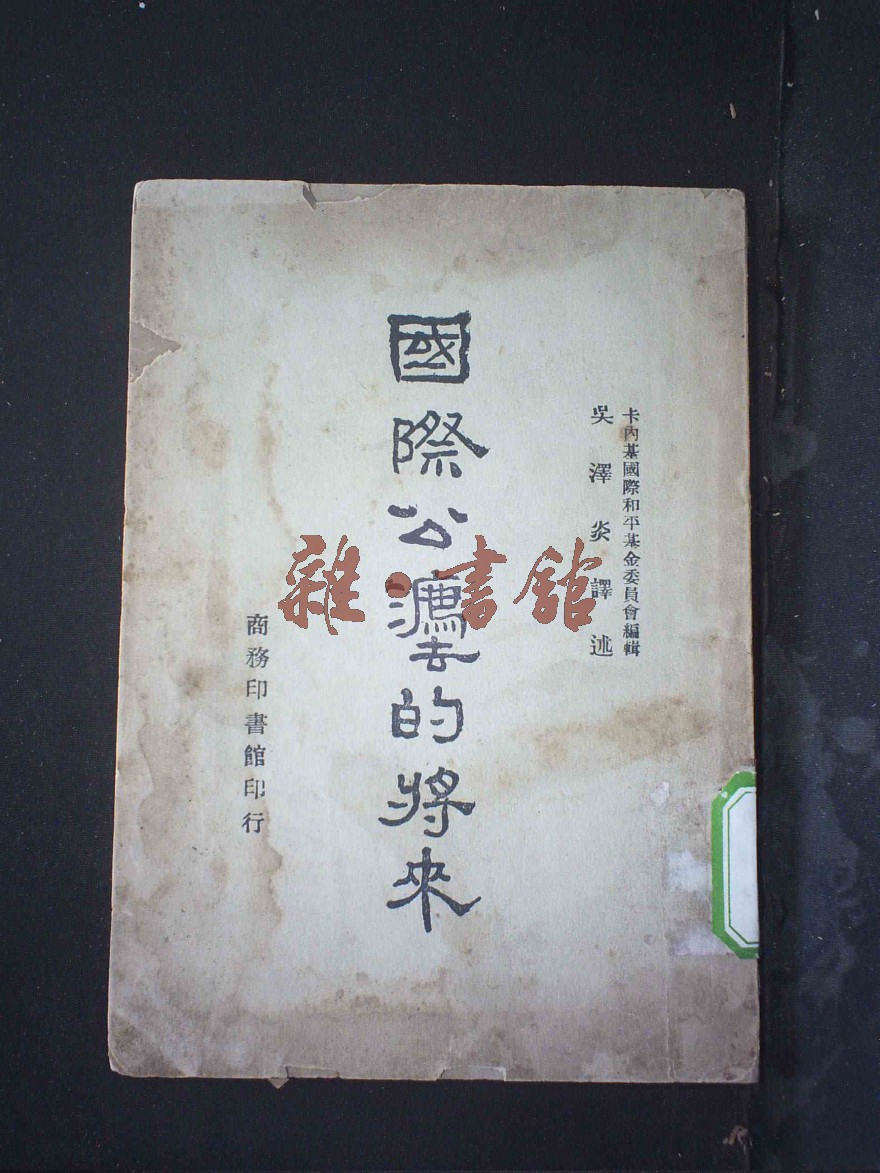 卡內基國際和平基金委員會編輯
吳澤炎譯述
國際公灋的將來
商務印書館印行
雜·書館